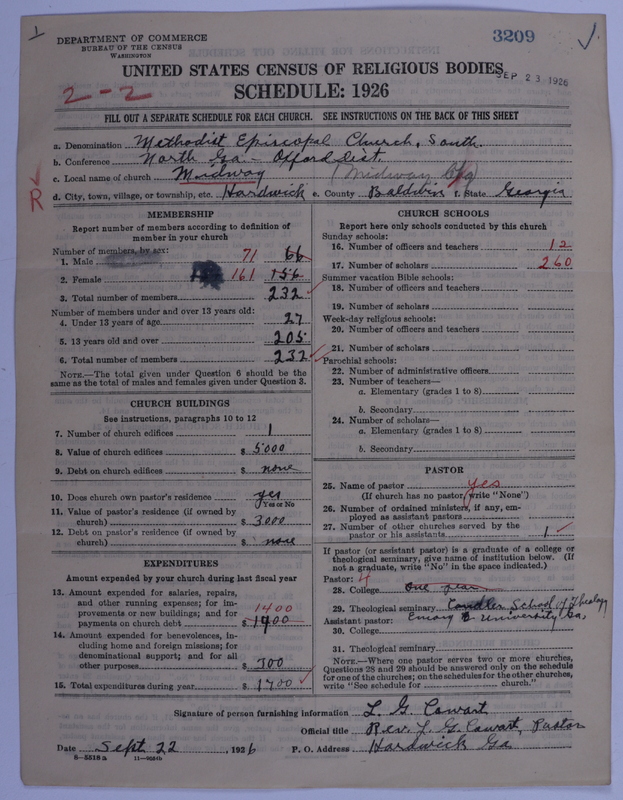 1
DEPARTMENT OF COMMERCE
BUREAU OF THE CENSUS
WASHINGTON
3209
UNITED STATES CENSUS OF RELIGIOUS BODIES
SEP 23 1926
2-2
SCHEDULE: 1926
FILL OUT A SEPARATE SCHEDULE FOR EACH CHURCH. SEE INSTRUCTIONS ON THE BACK OF THIS SHEET
a. Denomination Methodist Episcopal Church, South.
b. Conference North Ga - Oxford Dist.
c. Local name of church Midway (Midway
R
d. City, town, village, or township, etc. Hardwick e. County Baldwin f. State Georgia
MEMBERSHIP
Report number of members according to definition of member in your church
Number of members, by sex:
1. Male 71 66
2. Female 161 156
3. Total number of members 232
Number of members under and over 13 years old:
4. Under 13 years of age 27
5. 13 years old and over 205
6. Total number of members 232
NOTE.—The total given under Question 6 should be the
same as the total of males and females given under Question 3.
CHURCH BUILDINGS
See instructions, paragraphs 10 to 12
7. Number of church edifices 1
8. Value of church edifices $ 5000
9. Debt on church edifices $ none
10. Does church own pastor's residence yes
Yes or No
11. Value of pastor's residence (if owned by
church) $ 3000
12. Debt on pastor's residence (if owned by
church) $ none
EXPENDITURES
Amount expended by your church during last fiscal year
13. Amount expended for salaries, repairs,
and other running expenses; for im-
provements or new buildings; and for 1400
payments on church debt $ 1400
14. Amount expended for benevolences, in-
cluding home and foreign missions; for
denominational support; and for all
other purposes $ 300
15. Total expenditures during year $ 1700
CHURCH SCHOOLS
Report here only schools conducted by this church
Sunday schools:
16. Number of officers and teachers 12
17. Number of scholars 260
Summer vacation Bible schools:
18. Number of officers and teachers
19. Number of scholars
Week-day religious schools:
20. Number of officers and teachers
21. Number of scholars
Parochial schools:
22. Number of administrative officers
23. Number of teachers—
a. Elementary (grades 1 to 8)
b. Secondary
24. Number of scholars—
a. Elementary (grades 1 to 8)
b. Secondary
PASTOR
25. Name of pastor yes
(If church has no pastor, write "None")
26. Number of ordained ministers, if any, em-
ployed as assistant pastors
27. Number of other churches served by the
pastor or his assistants 1
If pastor (or assistant pastor) is a graduate of a college or
theological seminary, give name of institution below. (If
not a graduate, write "No" in the space indicated.)
Pastor: 4
28. College one year
29. Theological seminary Candler School of Theology
Assistant pastor: Emory University Ga,
30. College
31. Theological seminary
NOTE.—Where one pastor serves two or more churches,
Questions 28 and 29 should be answered only on the schedule
for one of the churches; on the schedules for the other churches,
write "See schedule for church."
Signature of person furnishing information L. G. Cowart
Official title Rev. L. G. Cowart, Pastor
Date Sept 22, 1926 P. O. Address Hardwick Ga
8-5518 a